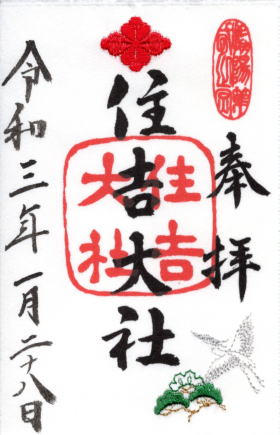 奉拝
住吉大社
住吉
大社
令和三年一月二十八日